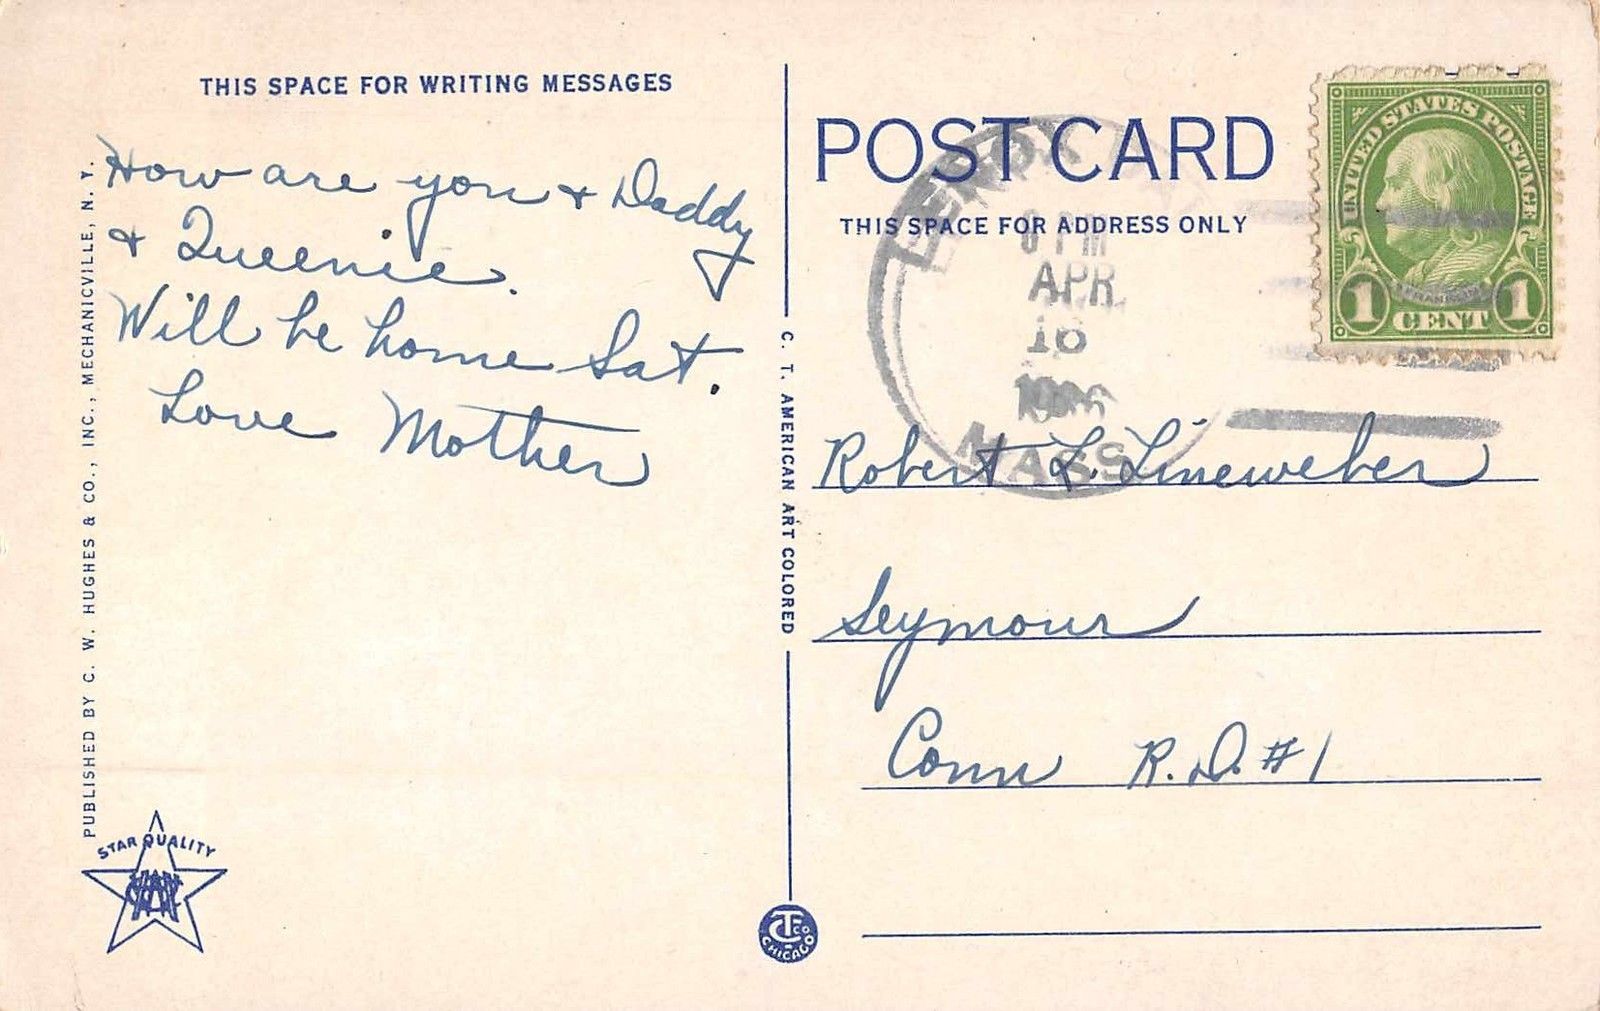 THIS SPACE FOR WRITING MESSAGES
How are you + Daddy
+ Queenie.
Will be home Sat.
Love Mother
PUBLISHED BY C. W. HUGHES & CO., INC., MECHANICVILLE, N. Y.
STAR QUALITY
C. T. AMERICAN ART COLORED
CT CO
CHICAGO
POST CARD
THIS SPACE FOR ADDRESS ONLY
LENOX
PM
APR
16
MASS
UNITED STATES POSTAGE
FRANKLIN
1 CENT 1
Robert L. Lineweber
Seymour
Conn R.D. #1